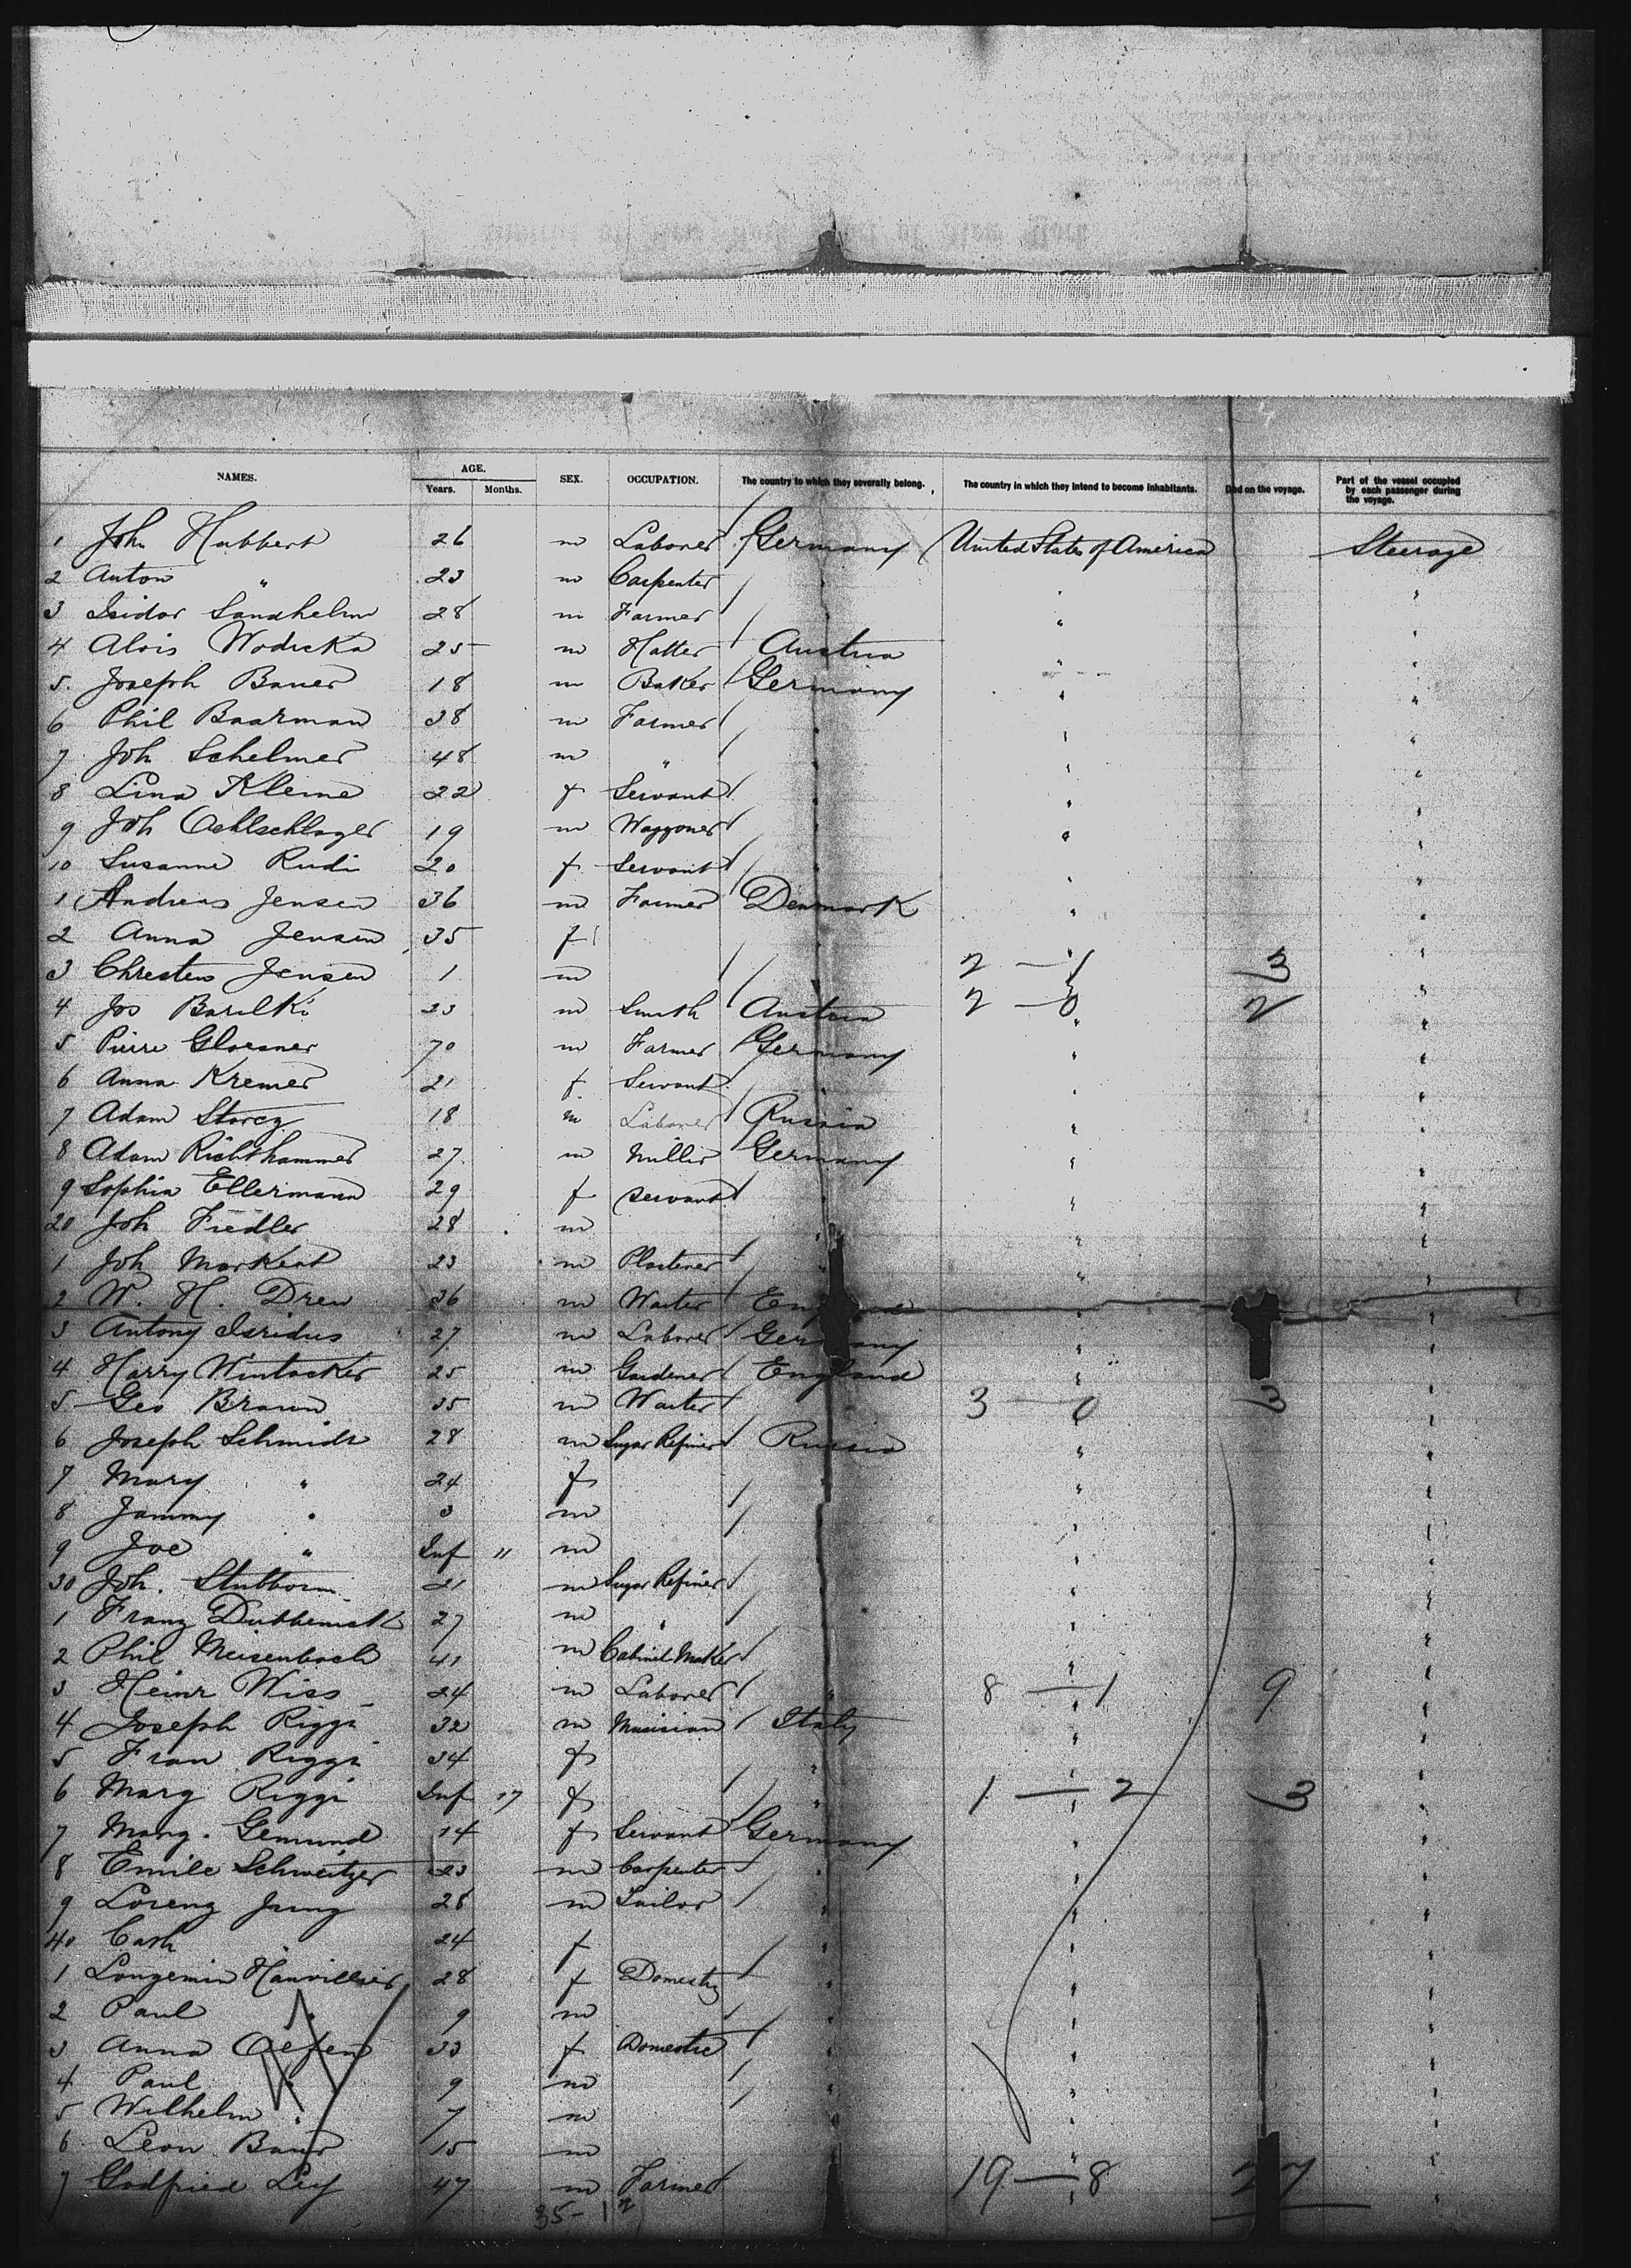 NAMES. AGE. Years. Months. SEX. OCCUPATION. The country to which they severally belong. The country in which they intend to become inhabitants. Died on the voyage. Part of the vessel occupied by each passenger during the voyage.
1 Joh Hubbert 26 m Laborer Germany United States of America Steerage
2 Anton " 23 m Carpenter " "
3 Isidor Sandhelm 28 m Farmer " "
4 Alois Wodicka 25 m Hatter Austria " "
5. Joseph Bauer 18 m Baker Germany " "
6 Phil Baarman 38 m Farmer " "
7 Joh Schelmer 48 m " " "
8 Lina Kleine 22 f Servant " "
9 Joh Oehlschlager 19 m Waggoner " "
10 Susanne Rudi 20 f Servant " "
1 Andreas Jensen 36 m Farmer Denmark " "
2 Anna Jensen 35 f " "
3 Chresten Jensen 1 m 2 — 1 3 "
4 Jos 23 m Smith Austria 2 — 0 2 "
5 Pierre Gloesner 70 m Farmer Germany " "
6 Anna Kremer 21 f Servant " "
7 Adam Storcz 18 m Laborer Russia " "
8 Adam Richthammer 27 m Miller Germany " "
9 Sophia Ellermann 29 f Servant " "
20 Joh Fiedler 28 m " "
1 Joh Markert 23 m Plasterer " "
2 W. H. Drew 36 m Waiter England " "
3 Antony 27 m Laborer Germany " "
4 Harry Wintacker 25 m Gardener England " "
5 Geo Brown 35 m Waiter 3 — 0 3 "
6 Joseph Schmidt 28 m Sugar Refiner Russia " "
7 Mary " 24 f " "
8 Jammy " 3 m " "
9 Joe " Inf 11 m " "
30 Joh. Stubborn 21 m Sugar Refiner " "
1 Franz 27 m " " "
2 Phil Meisenbach 41 m Cabinet Maker " "
3 Heinr Wiss 24 m Laborer " 8 — 1 9 "
4 Joseph Riggi 32 m Musician Italy " "
5 Fran Riggi 34 f " " "
6 Marg Riggi Inf f " 1 — 2 3 "
7 Marg. Gemund 14 f Servant Germany " "
8 Emile Schweitzer 23 m Carpenter " "
9 Lorenz Jung 28 m Tailor " "
40 Cath " 24 f " "
1 Longemin 28 f Domestic " "
2 Paul " 9 m " "
3 Anna Oefen 33 f Domestic " "
4 Paul " 9 m " "
5 Wilhelm " 7 m " "
6 Leon Baur 15 m " "
7 Godfried Ley 47 m Farmer 19 — 8 27 "
35 - 12